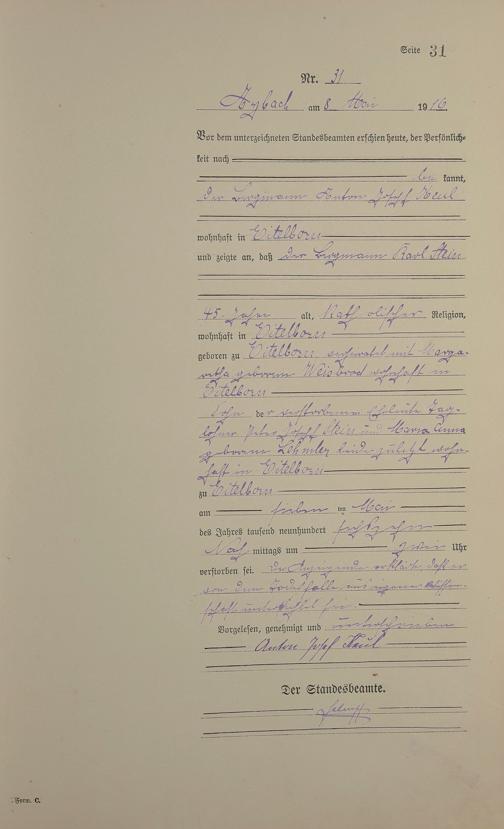 Seite 31
Nr. 31
Arzbach am 8 Mai 1916
Vor dem unterzeichneten Standesbeamten erschien heute, der Persönlich-
keit nach
be kannt,
der Bergmann Anton Josef Keul
wohnhaft in Eitelborn
und zeigte an, daß der Bergmann Karl Stein
45 Jahre alt, Kath olischer Religion,
wohnhaft in Eitelborn
geboren zu Eitelborn, verheiratet mit Marga-
retha geborenen Weisbrod wohnhaft in
Eitelborn
Sohn der verstorbenen Eheleute Tag-
löhner Peter Josef Stein und Maria Anna
geborene beide zuletzt wohn-
haft in Eitelborn
zu Eitelborn
am sieben ten Mai
des Jahres tausend neunhundert sechszehn
Nach mittags um zwei Uhr
verstorben sei. Der Anzeigende erklärte, daß er
von dem Todesfalle aus eigener Wissen-
schaft unterrichtet sei.
Vorgelesen, genehmigt und unterschrieben
Anton Josef Keul
Der Standesbeamte.
Form. C.